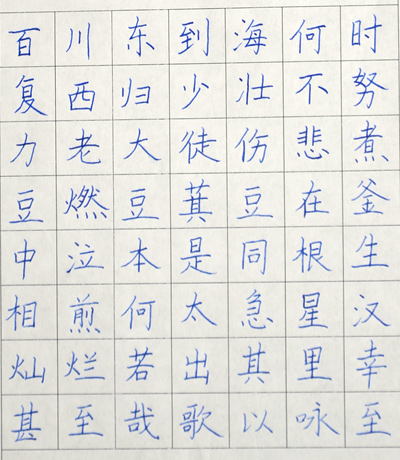 百川东到海何时
复西归少壮不努
力老大徒伤悲煮
豆燃豆萁豆在釜
中泣本是同根生
相煎何太急星汉
灿烂若出其里幸
甚至哉歌以咏至